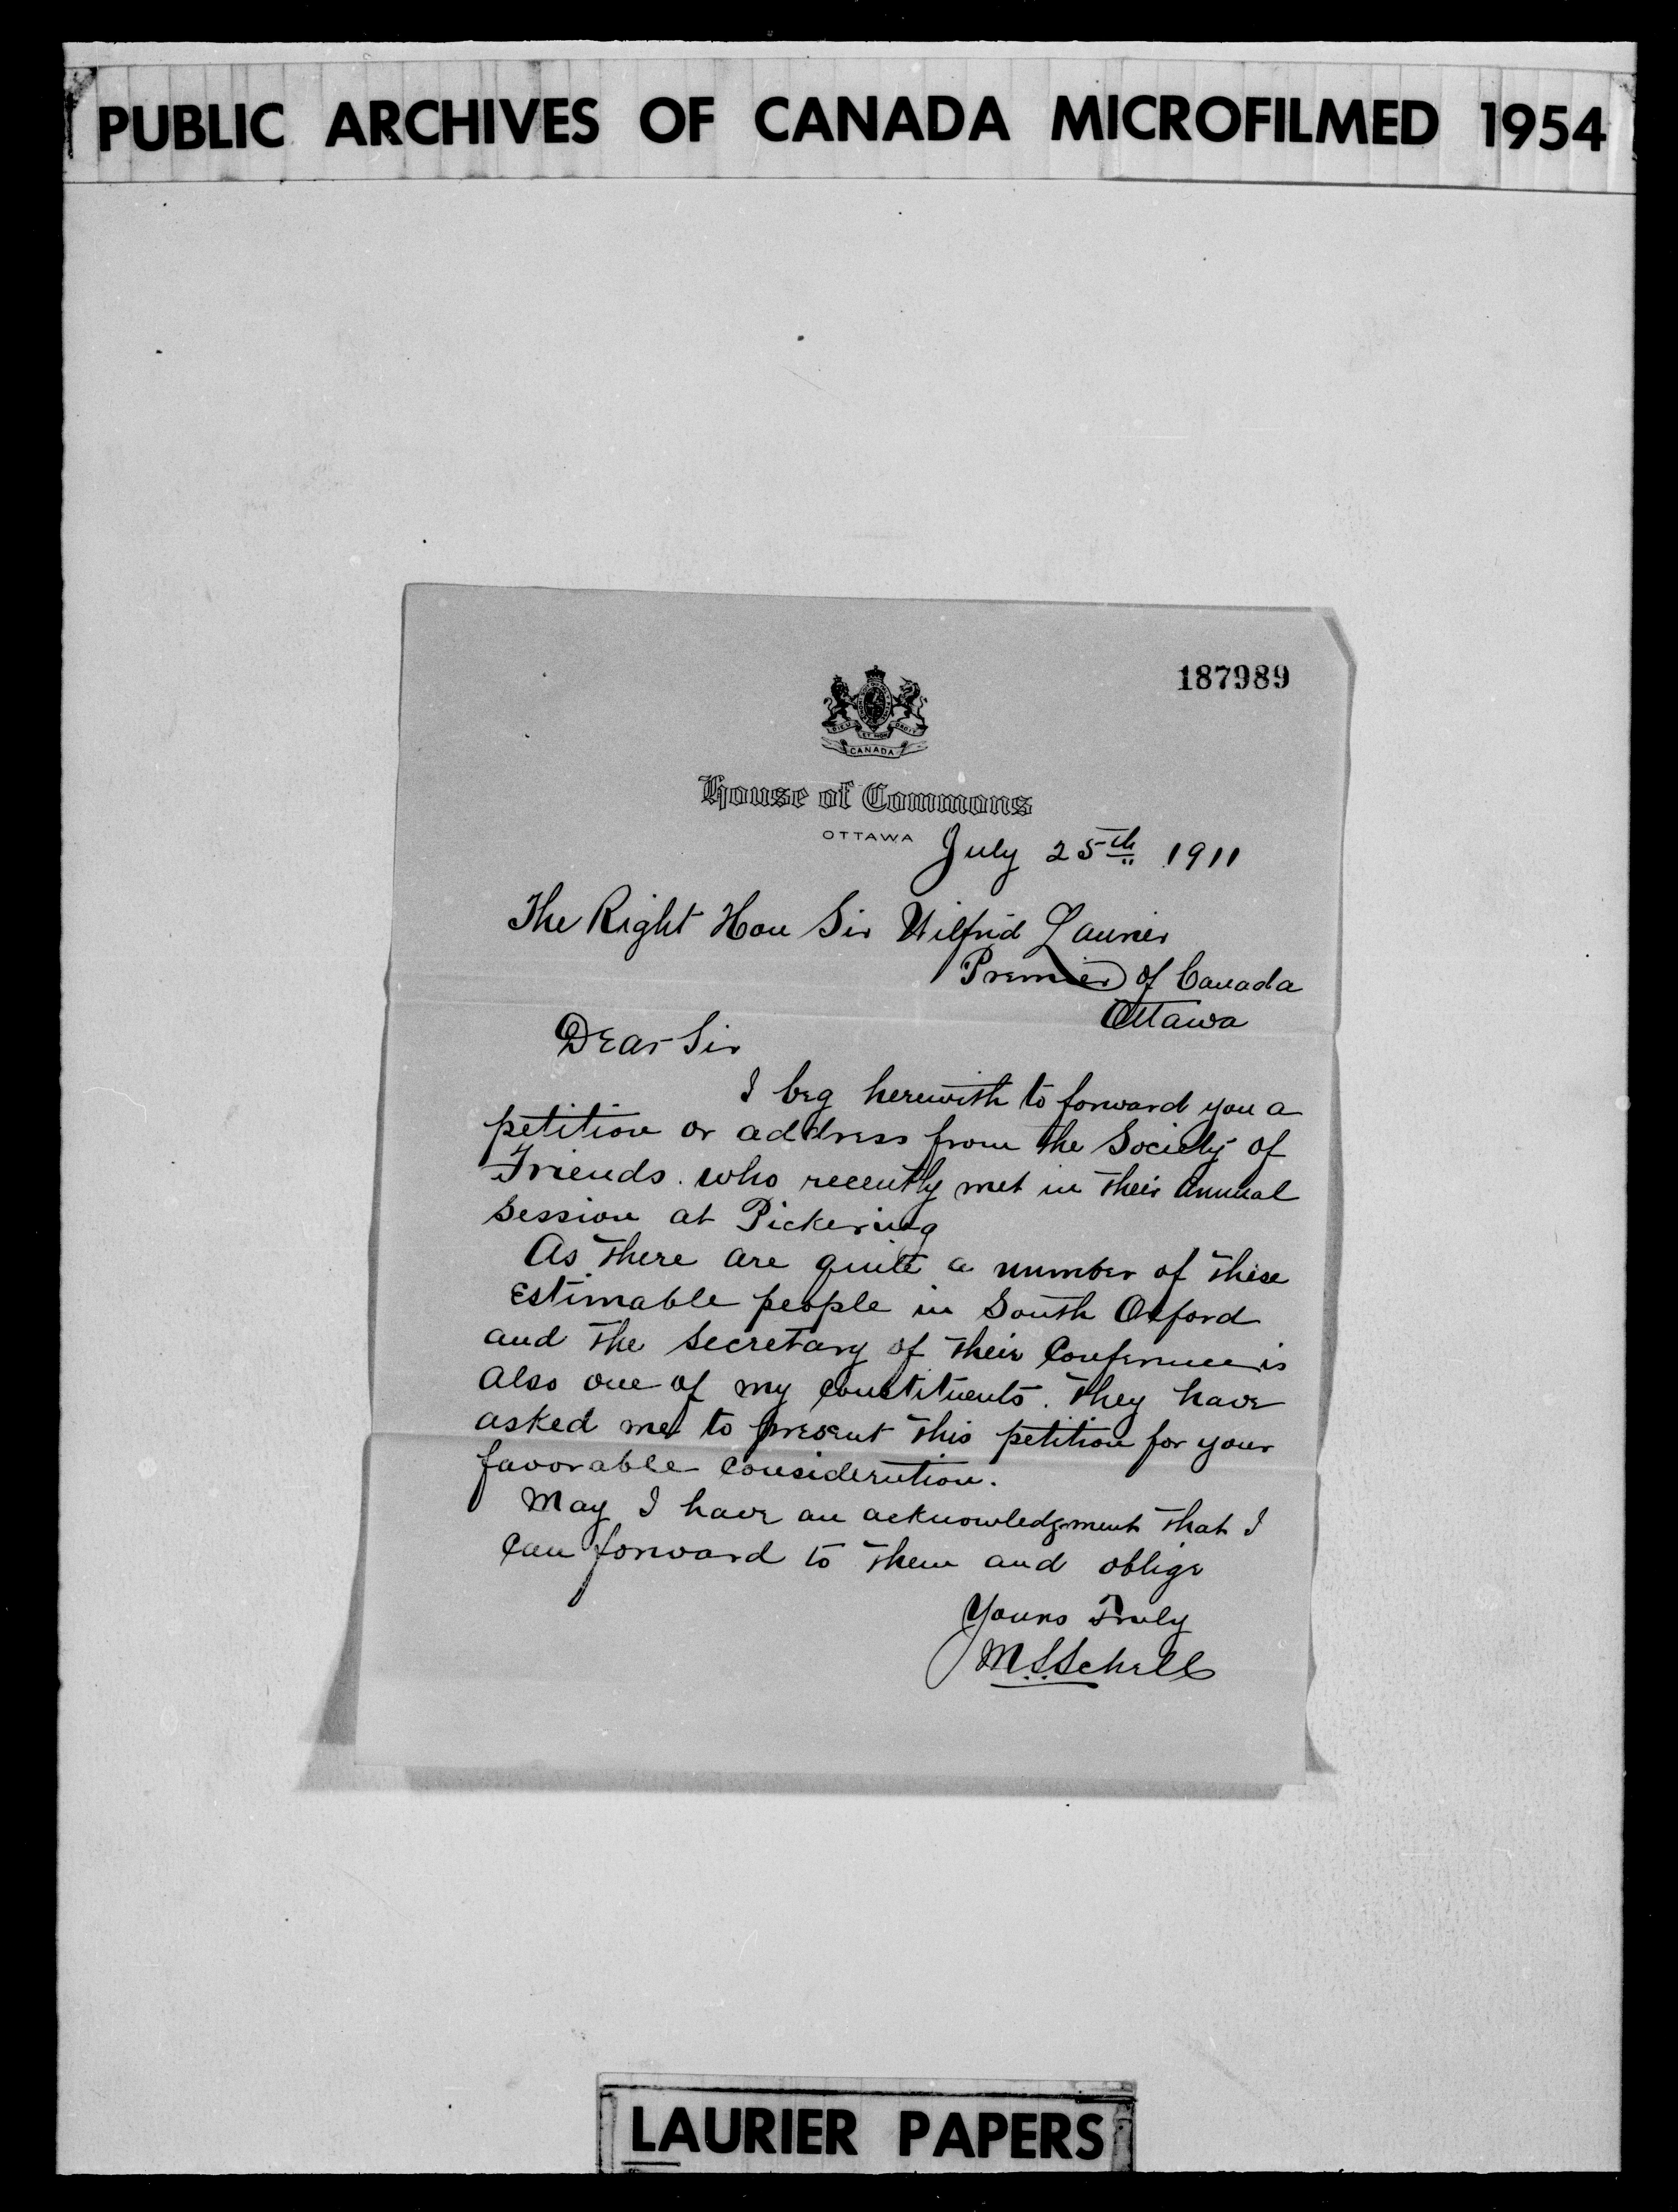 PUBLIC ARCHIVES OF CANADA MICROFILMED 1954
187989
DIEU ET MON DROIT
CANADA
House of Commons
OTTAWA
July 25th 1911
The Right Hon Sir Wilfrid Laurier
Premier of Canada
Ottawa
Dear Sir
I beg herewith to forward you a
petition or address from the Society of
Friends. who recently met in their annual
session at Pickering
As there are quite a number of these
estimable people in South Oxford
and the Secretary of their Conference is
also one of my constituents. They have
asked me to present this petition for your
favorable consideration.
May I have an acknowledgment that I
can forward to them and oblige
Yours Truly
M.S. Schell
LAURIER PAPERS